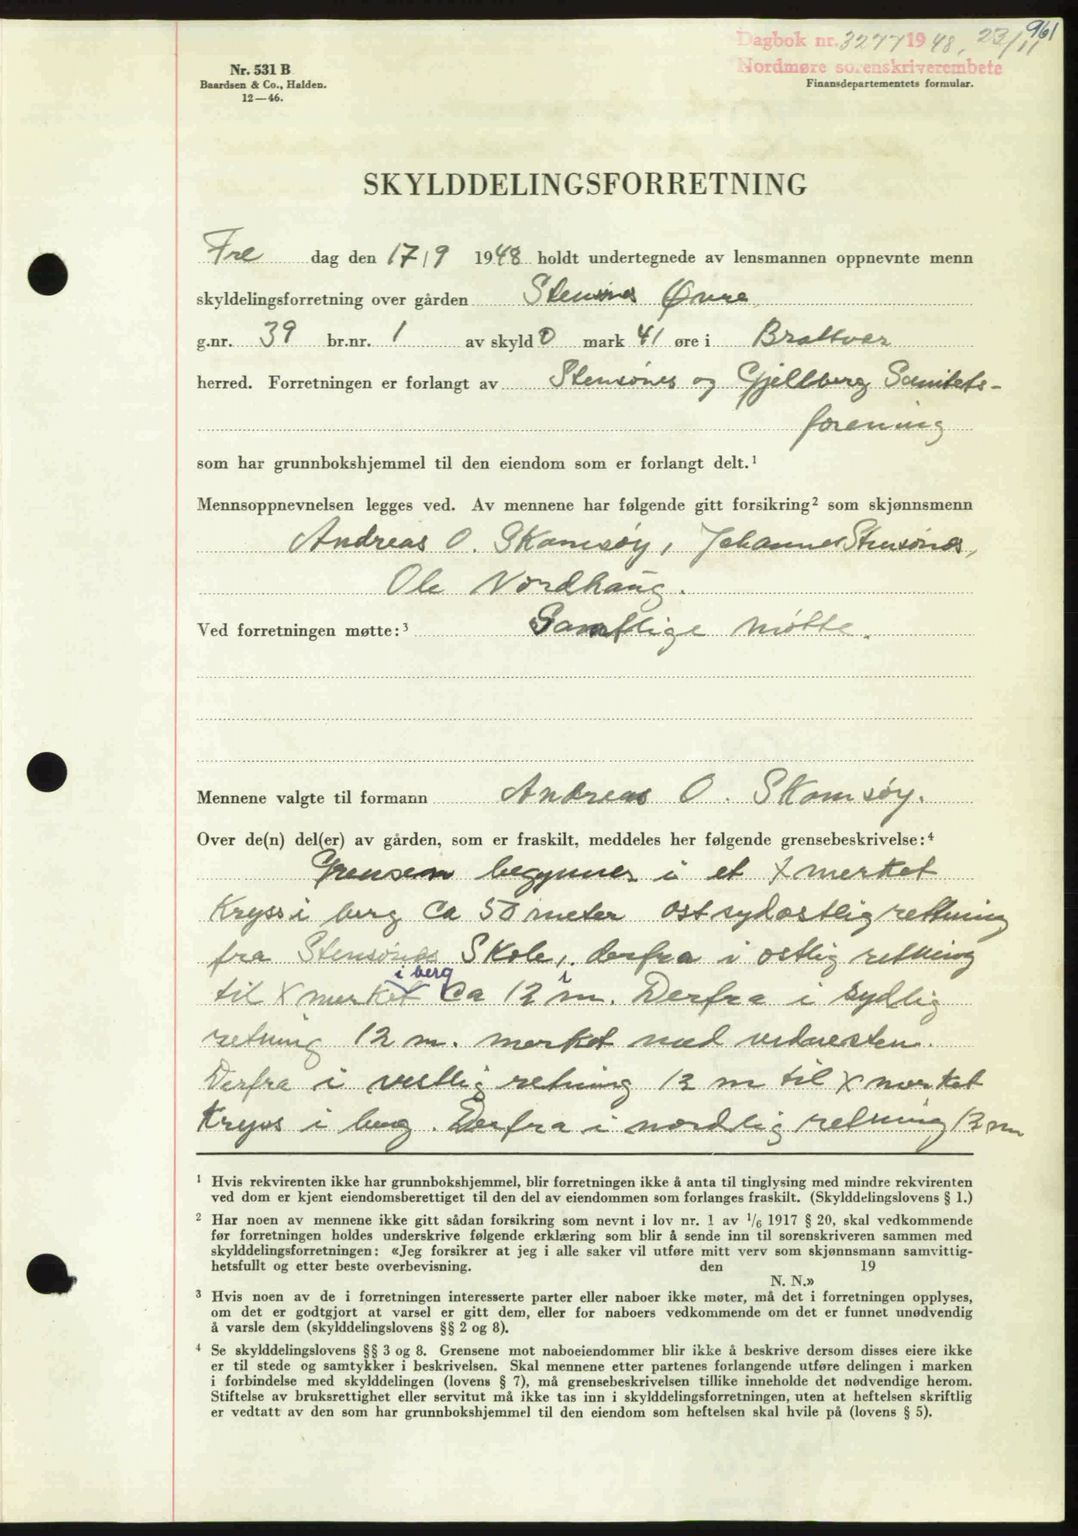 961
Dagbok nr. 3277 1948, 23/11
Nordmøre sorenskriverembete
Nr. 531 B
Baardsen & Co., Halden.
12—46.
Finansdepartementets formular.
SKYLDDELINGSFORRETNING
Fre dag den 17/9 1948 holdt undertegnede av lensmannen oppnevnte menn
skyldelingsforretning over gården Stensønes Øvre
g.nr. 39 br.nr. 1 av skyld 0 mark 41 øre i Brattvær
herred. Forretningen er forlangt av Stensønes og Gjellberg Sanitets-
forening
som har grunnbokshjemmel til den eiendom som er forlangt delt.¹
Mennsoppnevnelsen legges ved. Av mennene har følgende gitt forsikring² som skjønnsmenn
Andreas O. Skomsøy, Johannes Stensønes,
Ole Nordhaug.
Ved forretningen møtte:³ Samtlige møtte.
Mennene valgte til formann Andreas O. Skomsøy.
Over de(n) del(er) av gården, som er fraskilt, meddeles her følgende grensebeskrivelse:⁴
Grensen begynner i et X merket
Kryss i berg ca 50 meter ostsydostlig rettning
fra Stensønes Skole, derfra i ostlig retning
til X merket i berg ca 12 m. Derfra i sydlig
retning 12 m. merket med
Derfra i vestlig retning 12 m til X merket
Kryss i berg. Derfra i nordlig retning 12 m
¹ Hvis rekvirenten ikke har grunnbokshjemmel, blir forretningen ikke å anta til tinglysing med mindre rekvirenten
ved dom er kjent eiendomsberettiget til den del av eiendommen som forlanges fraskilt. (Skylddelingslovens § 1.)
² Har noen av mennene ikke gitt sådan forsikring som nevnt i lov nr. 1 av 1/6 1917 § 20, skal vedkommende
før forretningen holdes underskrive følgende erklæring som blir å sende inn til sorenskriveren sammen med
skylddelingsforretningen: «Jeg forsikrer at jeg i alle saker vil utføre mitt verv som skjønnsmann samvittig-
hetsfullt og etter beste overbevisning. den 19
N. N.»
³ Hvis noen av de i forretningen interesserte parter eller naboer ikke møter, må det i forretningen opplyses,
om det er godtgjort at varsel er gitt dem, eller for naboers vedkommende om det er funnet unødvendig
å varsle dem (skylddelingslovens §§ 2 og 8).
⁴ Se skylddelingslovens §§ 3 og 8. Grensene mot naboeiendommer blir ikke å beskrive dersom disses eiere ikke
er til stede og samtykker i beskrivelsen. Skal mennene etter partenes forlangende utføre delingen i marken
i forbindelse med skylddelingen (lovens § 7), må grensebeskrivelsen tillike inneholde det nødvendige herom.
Stiftelse av bruksrettighet eller servitut må ikke tas inn i skylddelingsforretningen, uten at heftelsen skriftlig
er vedtatt av den som har grunnbokshjemmel til den eiendom som heftelsen skal hvile på (lovens § 5).